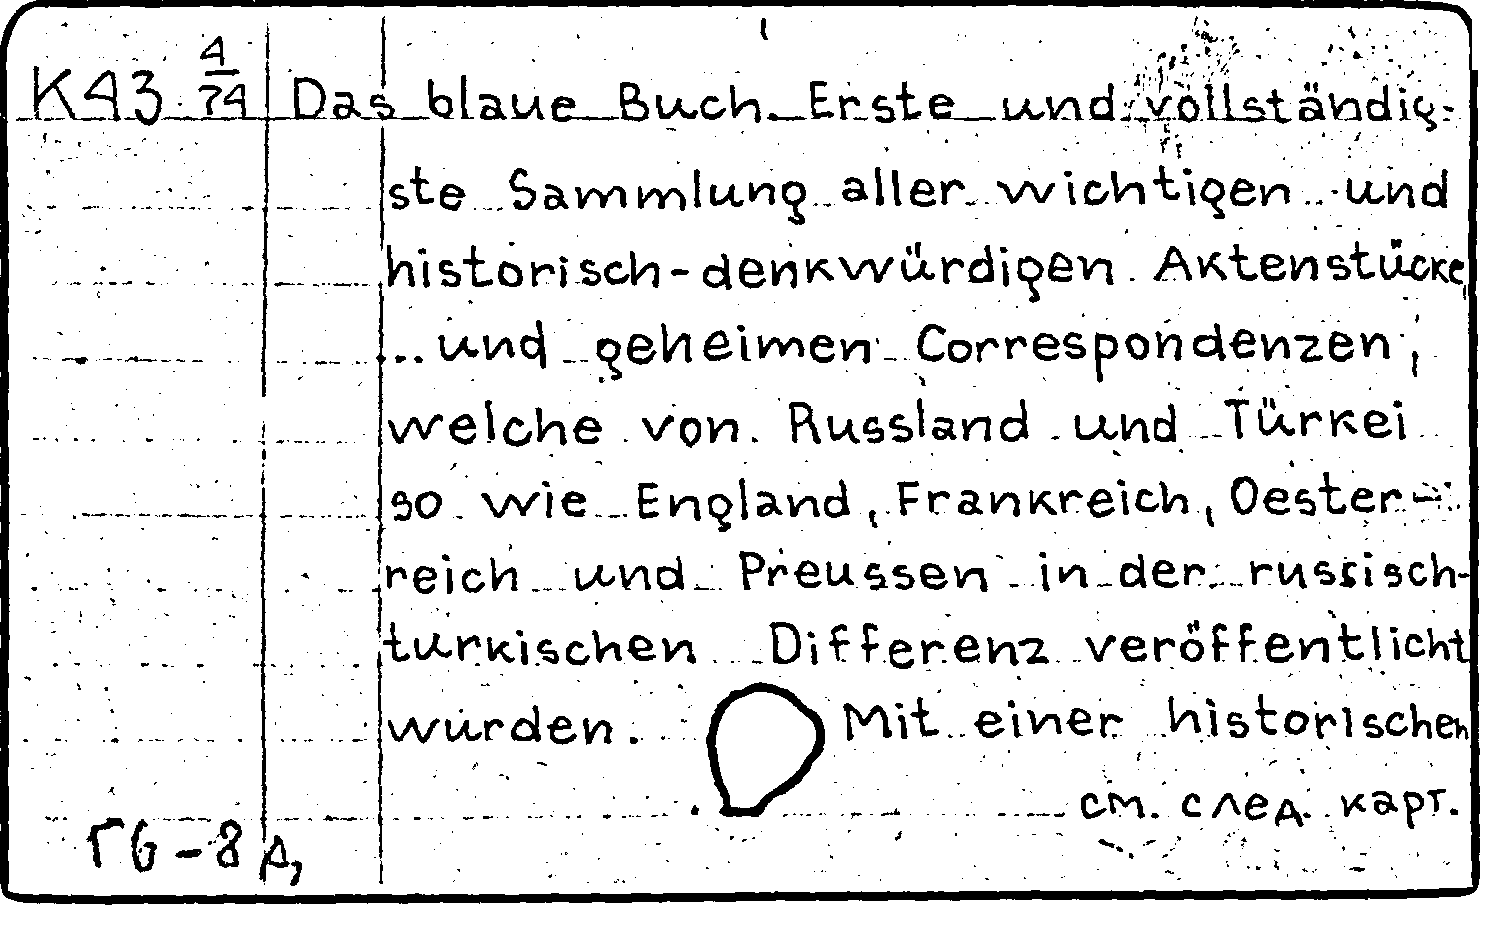 K43 4/74 Das blaue Buch. Erste und vollständig-
ste Sammlung aller wichtigen und
historisch-denkwürdigen Aktenstücke,
... und geheimen Correspondenzen,
welche von Russland und Türkei
so wie England, Frankreich, Oester-
reich und Preussen in der russisch-
turkischen Differenz veröffentlicht
wurden. Mit einer historischen
см. след. карт.
Г6-8д,